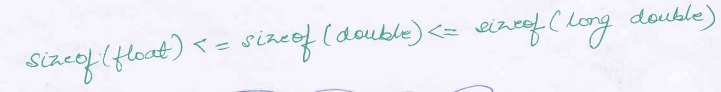 sizeof(float) <= sizeof(double) <= sizeof(long double)